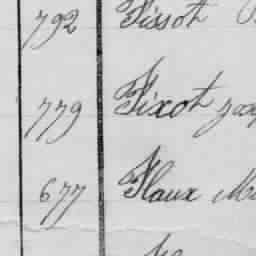 792 Fissot
779 Fixot
677 Flaux